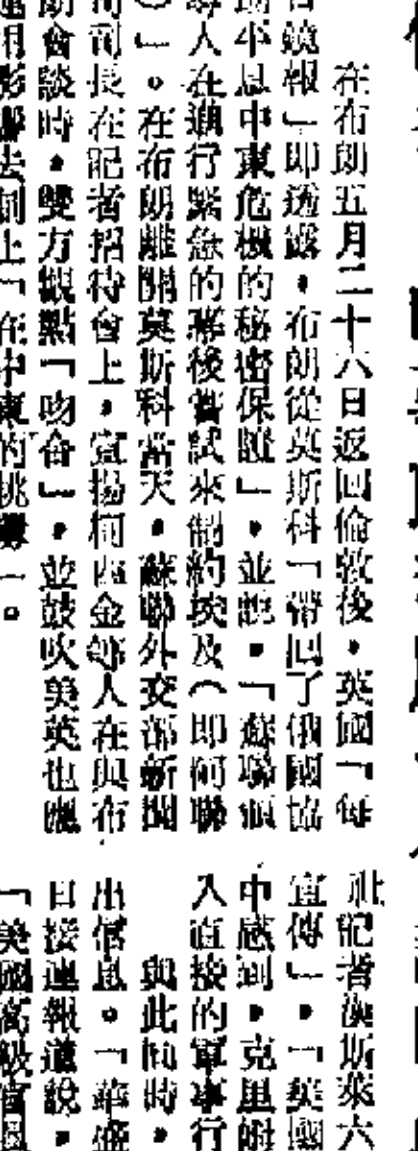 在布朗五月二十六日返回倫敦後，英國「每
日鏡報」即透露，布朗從莫斯科「帶回了俄國協
助平息中東危機的秘密保證」，並說，「蘇聯領
導人在進行緊急的幕後嘗試來制約埃及（即阿聯
）」。在布朗離開莫斯科當天，蘇聯外交部新聞
司司長在記者招待會上，宣揚柯西金等人在與布
朗會談時，雙方觀點「吻合」，並鼓吹美英也應
去制止「在中東的挑釁」。
社記者漢斯萊六
宣傳」，「英國
中感到，克里姆
入直接的軍事行
與此同時，
出信息。「華盛
日接連報道說，
「美國高級官員